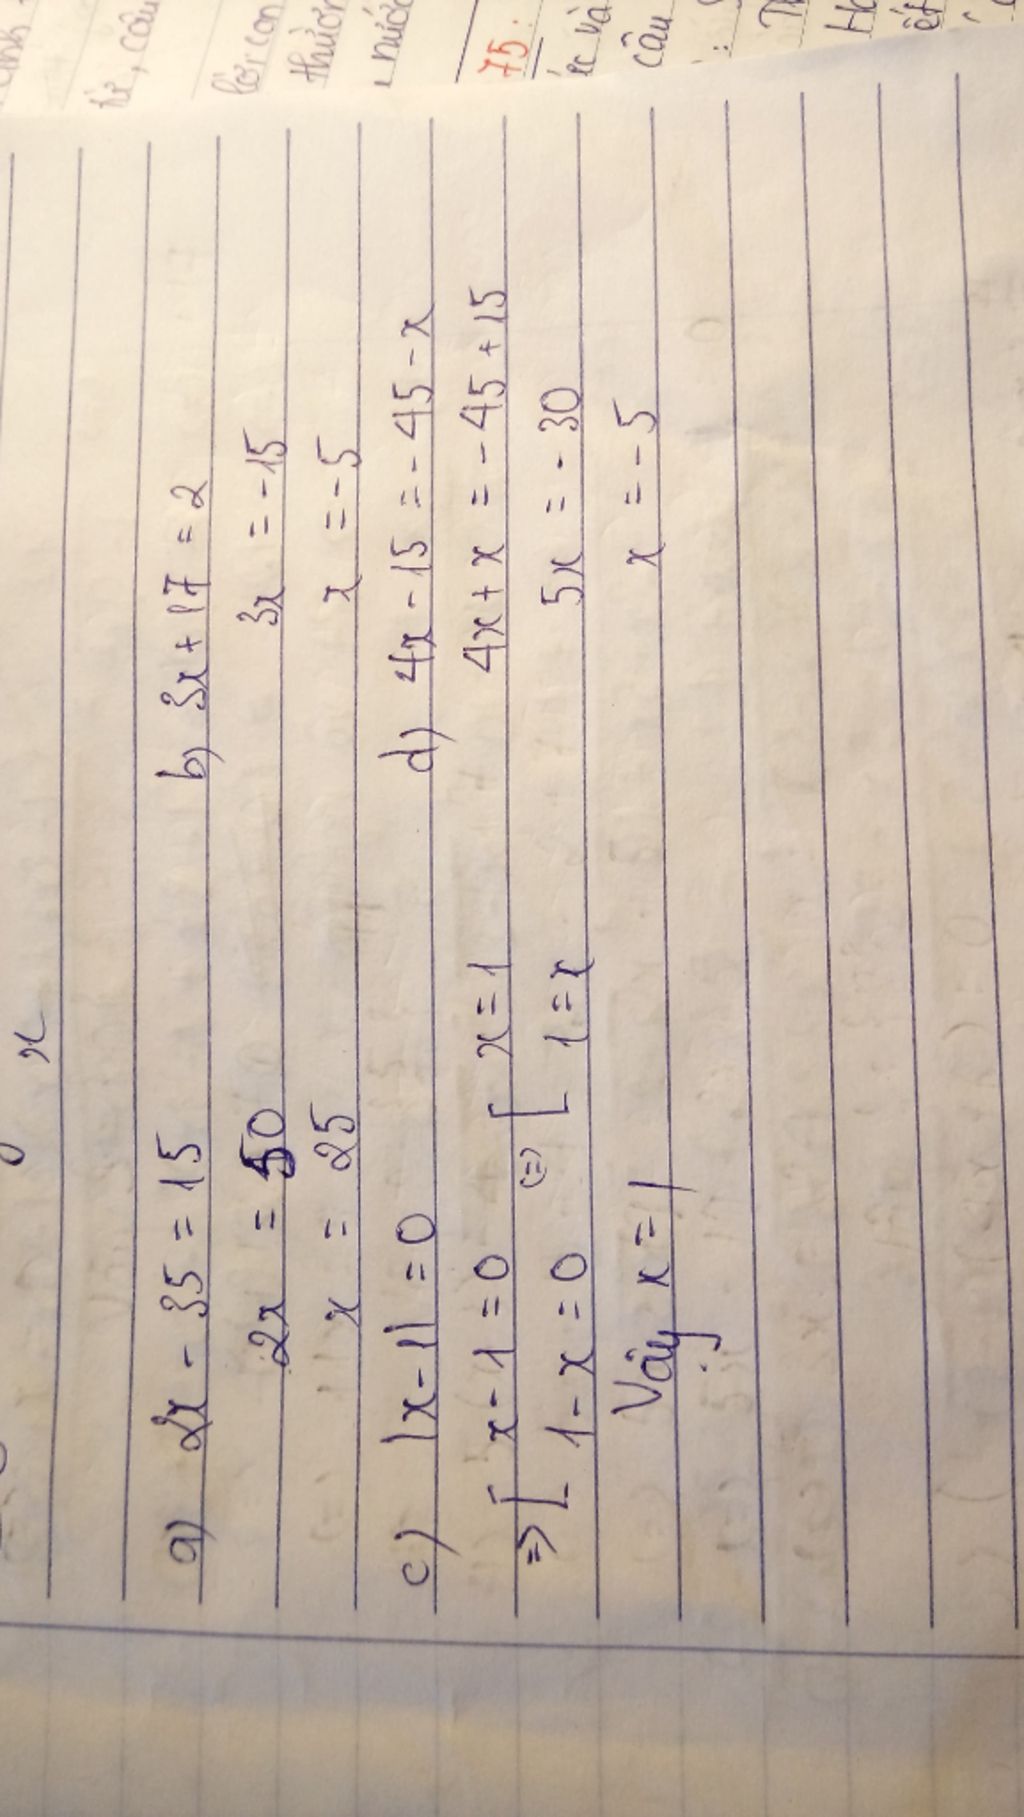 x
a) 2x - 35 = 15
2x = 50
x = 25
b) 3x + 17 = 2
3x = -15
x = -5
c) |x-1| = 0
=> [ x - 1 = 0 (=) [ x = 1
1 - x = 0 1 = x
Vậy x = 1
d) 4x - 15 = - 45 - x
4x + x = - 45 + 15
5x = - 30
x = - 5
từ, câu
lời, con
thườn
nước
75:
ếc và
câu